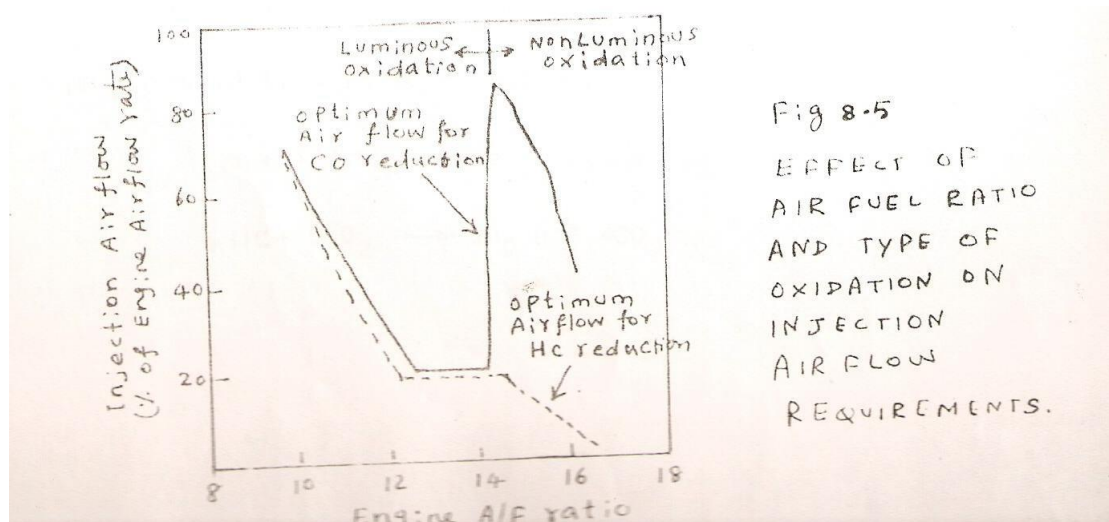 100
80
60
40
20
Injection Airflow
(% of Engine Airflow rate)
Luminous
oxidation
NonLuminous
oxidation
optimum
Air flow for
Co reduction
optimum
Airflow for
Hc reduction
8 10 12 14 16 18
Engine A/F ratio
Fig 8.5
EFFECT OF
AIR FUEL RATIO
AND TYPE OF
OXIDATION ON
INJECTION
AIR FLOW
REQUIREMENTS.